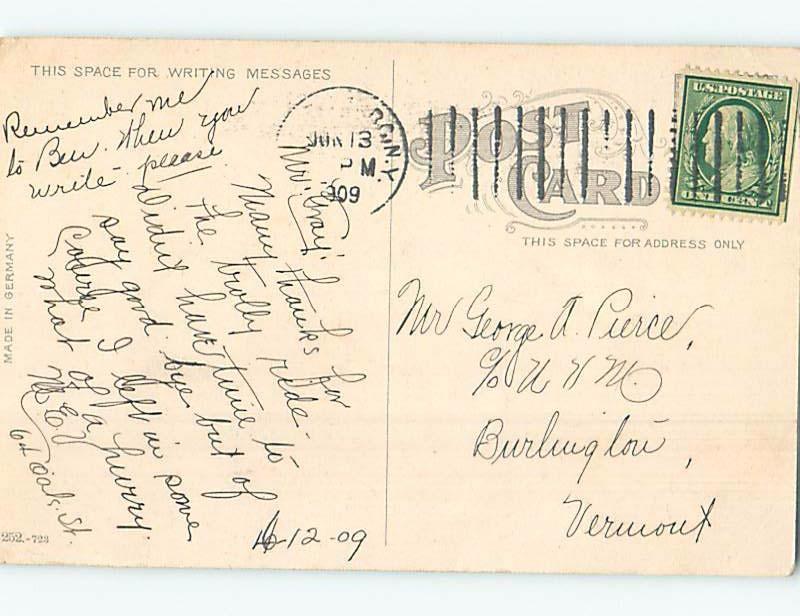 THIS SPACE FOR WRITING MESSAGES
Remember me
to Ben. When you
write - please
Mr. Gray!
Many thanks for
the trolly ride -
Didn't have time to
say good bye but of
Course I left in some
what of a hurry.
M. E. G.
64 Oak St.
6-12-09
MADE IN GERMANY
252.-723
JUN 13
PM.
909
N.Y.
POST CARD
U.S. POSTAGE
ONE CENT
THIS SPACE FOR ADDRESS ONLY
Mr George A. Pierce,
c/o U V M.
Burlington,
Vermont